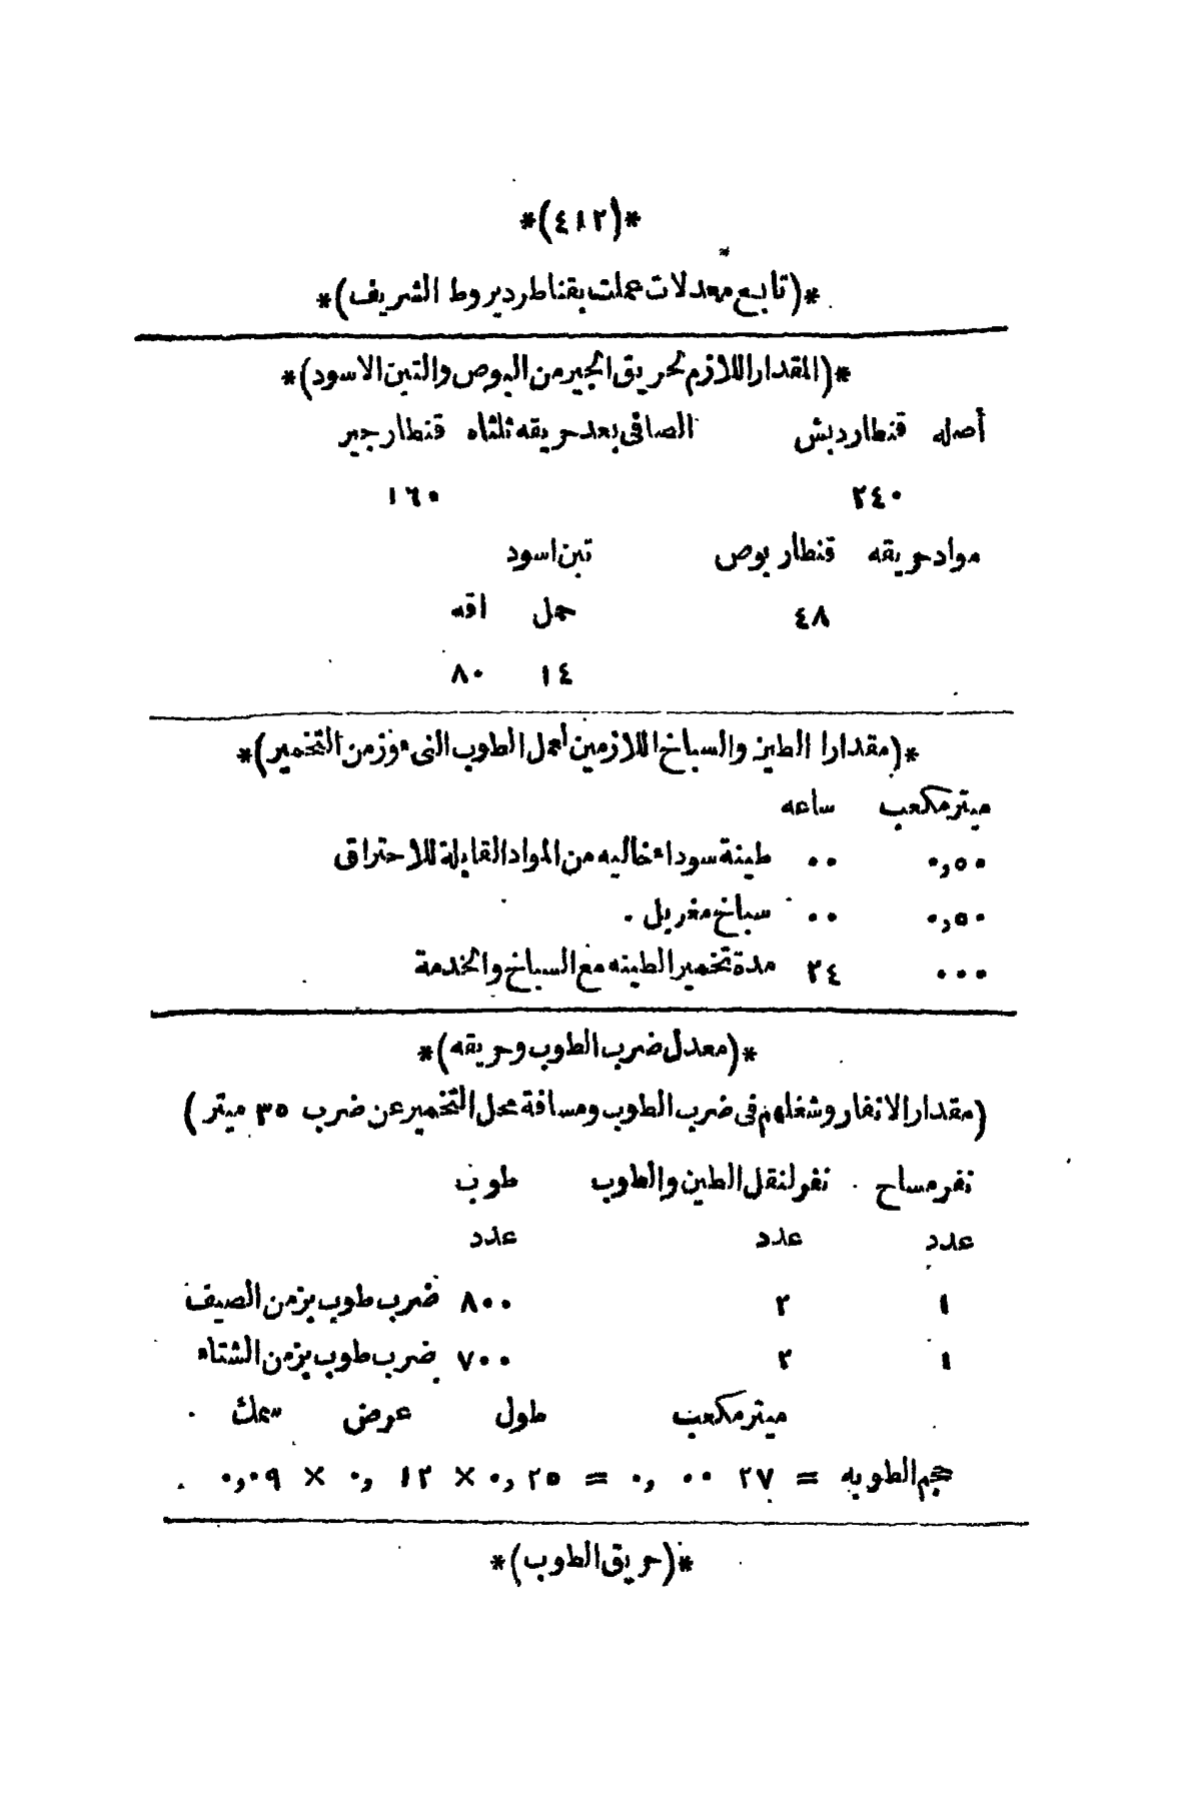 *(٤١٢)*
*(تابع معدلات عملت بقناطر ديروط الشريف)*
*(المقدار اللازم لحريق الجير من البوص والتبن الاسود)*
أصله قنطار دبش الصافى بعد حريقه ثلثاه قنطار جير
٢٤٠ ١٦٠
مواد حريقه قنطار بوص تبن اسود
٤٨ حمل اقه
١٤ ٨٠
*(مقدارا الطين والسباخ اللازمين لعمل الطوب النىء وزمن التخمير)*
ميتر مكعب ساعه
٠,٥٠ ٠٠ طينة سوداء خاليه من المواد القابلة للاحتراق
٠,٥٠ ٠٠ سباخ مغربل .
٠٠٠ ٢٤ مدة تخمير الطينه مع السباخ والخدمة
*(معدل ضرب الطوب وحريقه)*
(مقدار الانفار وشغلهم فى ضرب الطوب ومسافة محل التخمير عن ضرب ٣٥ ميتر)
نفر مساح نفر لنقل الطين والطوب طوب
عدد عدد عدد
١ ٢ ٨٠٠ ضرب طوب بزمن الصيف
١ ٢ ٧٠٠ ضرب طوب بزمن الشتاء
ميتر مكعب طول عرض سمك
حجم الطوبه = ٠,٠٠٢٧ = ٠,٢٥ × ٠,١٢ × ٠,٠٩
*(حريق الطوب)*